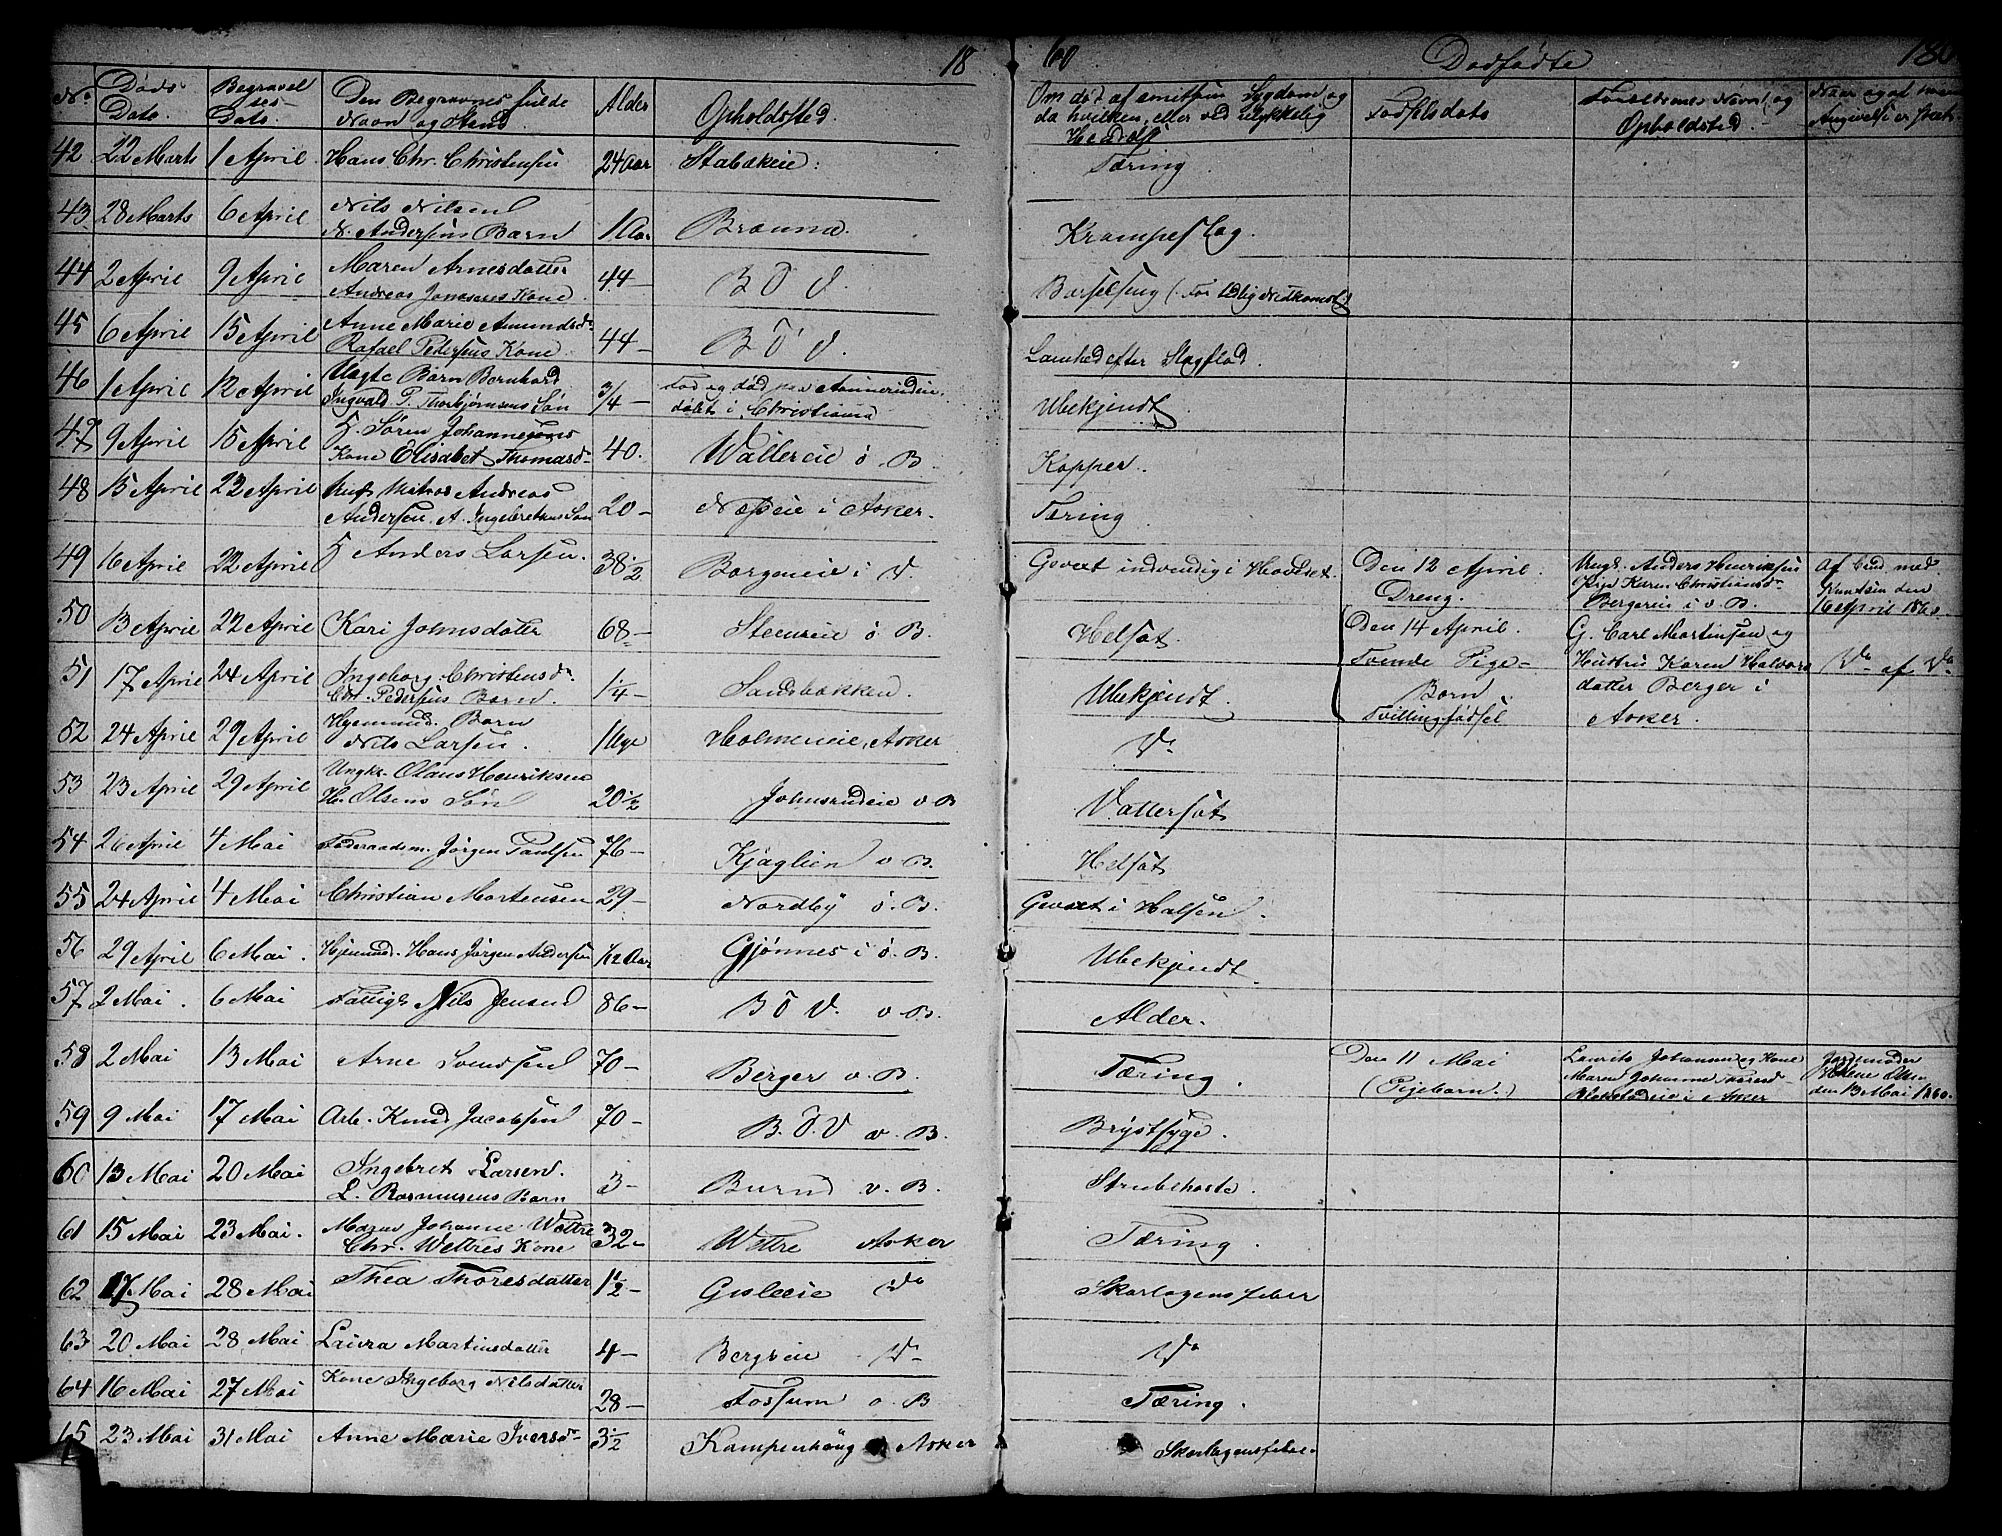 18 60 Dødfødte
No. Døds Dato. Begravelses Dato. Den Begravnes fulde Navn og Stand. Alder Opholdsted. Om død af smitsom Sygdom og da hvilken, eller ved ulykkelig Hendelse Fødselsdato Forældrenes Navn og Opholdsted.
42 22 Marts 1 April Hans Chr. Christensen 24 Aar Stabækeie. Tæring.
43 28 Marts 6 April Nils Nilsen
N. Andersens Barn 1 Aar Krampeslag.
44 2 April 9 April Maren Arnesdatter
Andreas Jonsens Kone 44 – B Ö V. Barselseng (for tidlig Nedkomst)
45 6 April 15 April Anne Marie Amundsd.
Rafael Pedersens Kone. 44 – B Ö V. Lamhed efter Slagflod.
46 1 April 12 April Uægte Barn Bernhard
Ingvald P. Thorbjørnsens Søn 3/4 – døbt i Christiania Ubekjendt.
47 9 April 15 April G. Søren Johannesens
Kone Elisabet Thomasd. 40. Wallereie ö. B. Kopper.
48 15 April 22 April Andreas
Andersen, A. Ingebretsens Søn 20 – Næseie i Asker. Tæring
49 16 April 22 April G Anders Larsen. 38 1/2 Borgeneie i V. Gevext indvendig i Hovedet. Den 12 April.
Dreng. Ungk. Anders Henriksen
Pige Karen Christiansd.
Bergereie i v. B. Af Bud med
Knutsen den
16 April 1860.
50 13 April 22 April Kari Johnsdatter 68 – Steenseie ö. B. Helsot. Den 14 April.
Tvende Pige-
Børn
Tvillingfødsel G. Carl Martinsen og
Hustru Karen Halvors
datter Berger i
Asker. Do af Do
51 17 April 24 April Ingeborg Christensd.
Chr. Pedersens Barn. 1/4 – Sandbakken. Ubekjendt.
52 24 April 29 April Hjemmed. Barn
Nils Larsen. 1 Uge Holmeneie, Asker Do
53 23 April 29 April Ungkr. Olaus Henriksen
H. Olsens Søn 20 1/2 Johnsrudeie v B Vattersot
54 26 April 4 Mai Føderaadsm. Jørgen Paulsen 76 – Kjaglien v B. Helsot
55 24 April 4 Mai Christian Mortensen 29 – Nordby ö. B. Gevext i Halsen.
56 29 April 6 Mai. Hjemmd. Hans Jørgen Andersen 1/12 Aar Gjønnes i ö. B. Ubekjendt
57 2 Mai. 6 Mai Fattigl. Nils Jensen 86 – B Ö V. v. B. Alder.
58 2 Mai 13 Mai Arne Svendsen 70 – Berger v. B. Tæring. Den 11 Mai
(Pigebarn.) Laurits Johannsen og Kone
Maren Johanne
i Asker Jordemoder
Helene Olsen
den 13 Mai 1860.
59 9 Mai 17 Mai Arb. Knud Jacobsen 70 – B. Ö. V v. B. Brystsyge.
60 13 Mai 20 Mai Ingebret Larsen.
L. Rasmusens Barn 3 – Burud v. B. Strubehoste.
61 15 Mai 23 Mai. Maren Johanne Wettre
Chr. Wettres Kone 32 – Wettre Asker Tæring.
62 17 Mai 28 Mai Thea Thoresdatter 1 1/2 – Gisleeie Do Skarlagensfeber
63 20 Mai 28 Mai Laura Martinsdatter 4 – Bergseie Do Do
64 16 Mai 27 Mai Kone Ingeborg Nilsdatter 28 – Fossum v. B Tæring.
65 23 Mai 31 Mai Anne Marie Iversd. 3 1/2 Kampenhaug Asker Skarlagensfeber